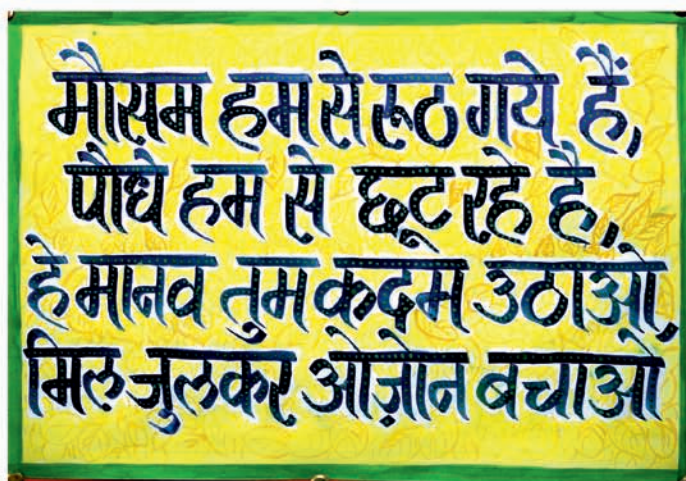 मौसम हम से रूठ गये हैं,
पौधे हम से छूट रहे है,
हे मानव तुम कदम उठाओ,
मिल जुलकर ओज़ोन बचाओ